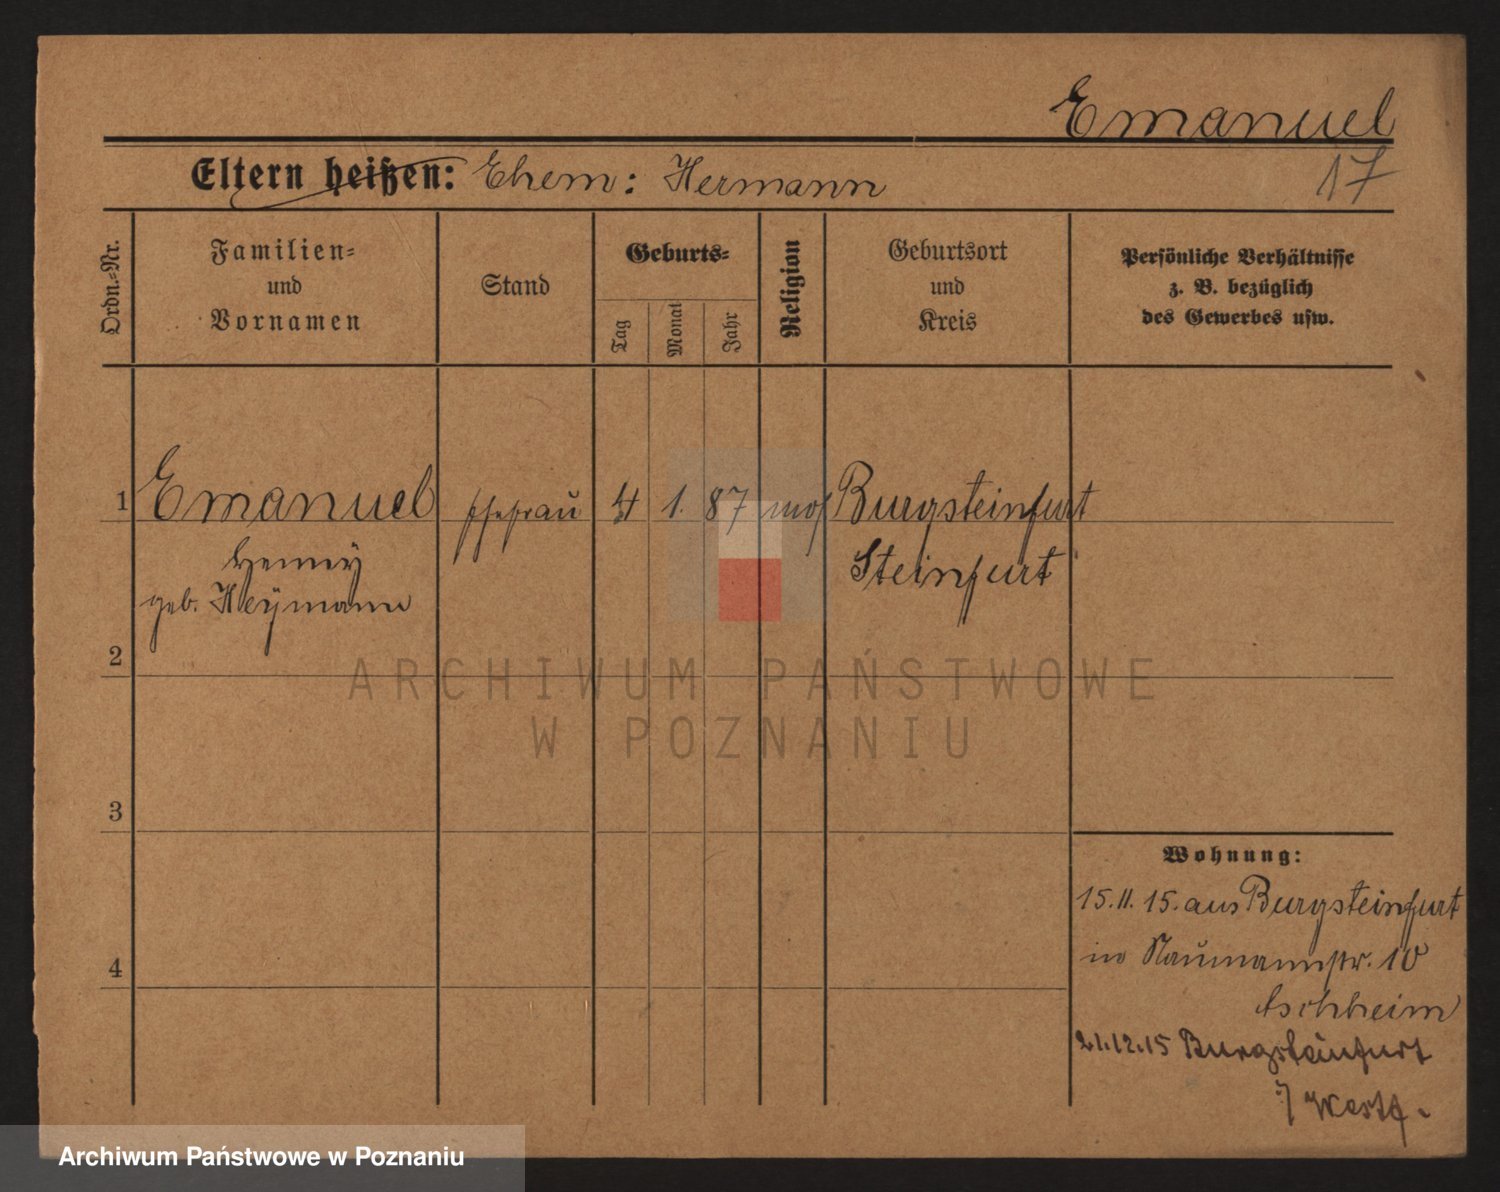 Emanuel
17
Eltern heißen: Ehem: Hermann
Ordn.-Nr.
Familien-
und
Vornamen
Stand
Geburts-
Tag
Monat
Jahr
Religion
Geburtsort
und
Kreis
Persönliche Verhältnisse
z. B. bezüglich
des Gewerbes usw.
1 Emanuel Ehefrau 4 1. 87 mos Burgsteinfurt
Henny Steinfurt
geb. Heymann
2
3
4
Wohnung:
15.11.15. aus Burgsteinfurt
in Naumannstr. 10
21.12.15 Burgsteinfurt
i/ Westf.
ARCHIWUM PAŃSTWOWE
W POZNANIU
Archiwum Państwowe w Poznaniu